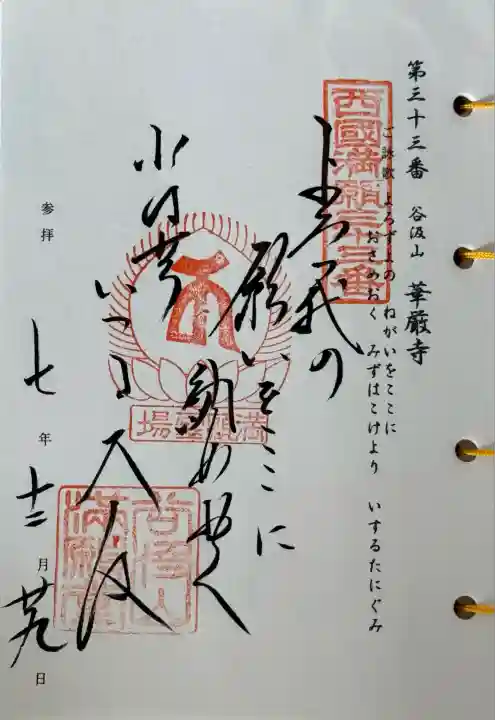 第三十三番 谷汲山 華厳寺
ご詠歌 よろずよの ねがいをここに
おさめおく みずはこけより いするたにぐみ
西國満願三十三番
願いをここに
納めおく
満願霊場
谷汲山
参拝 七年十二月廿九日